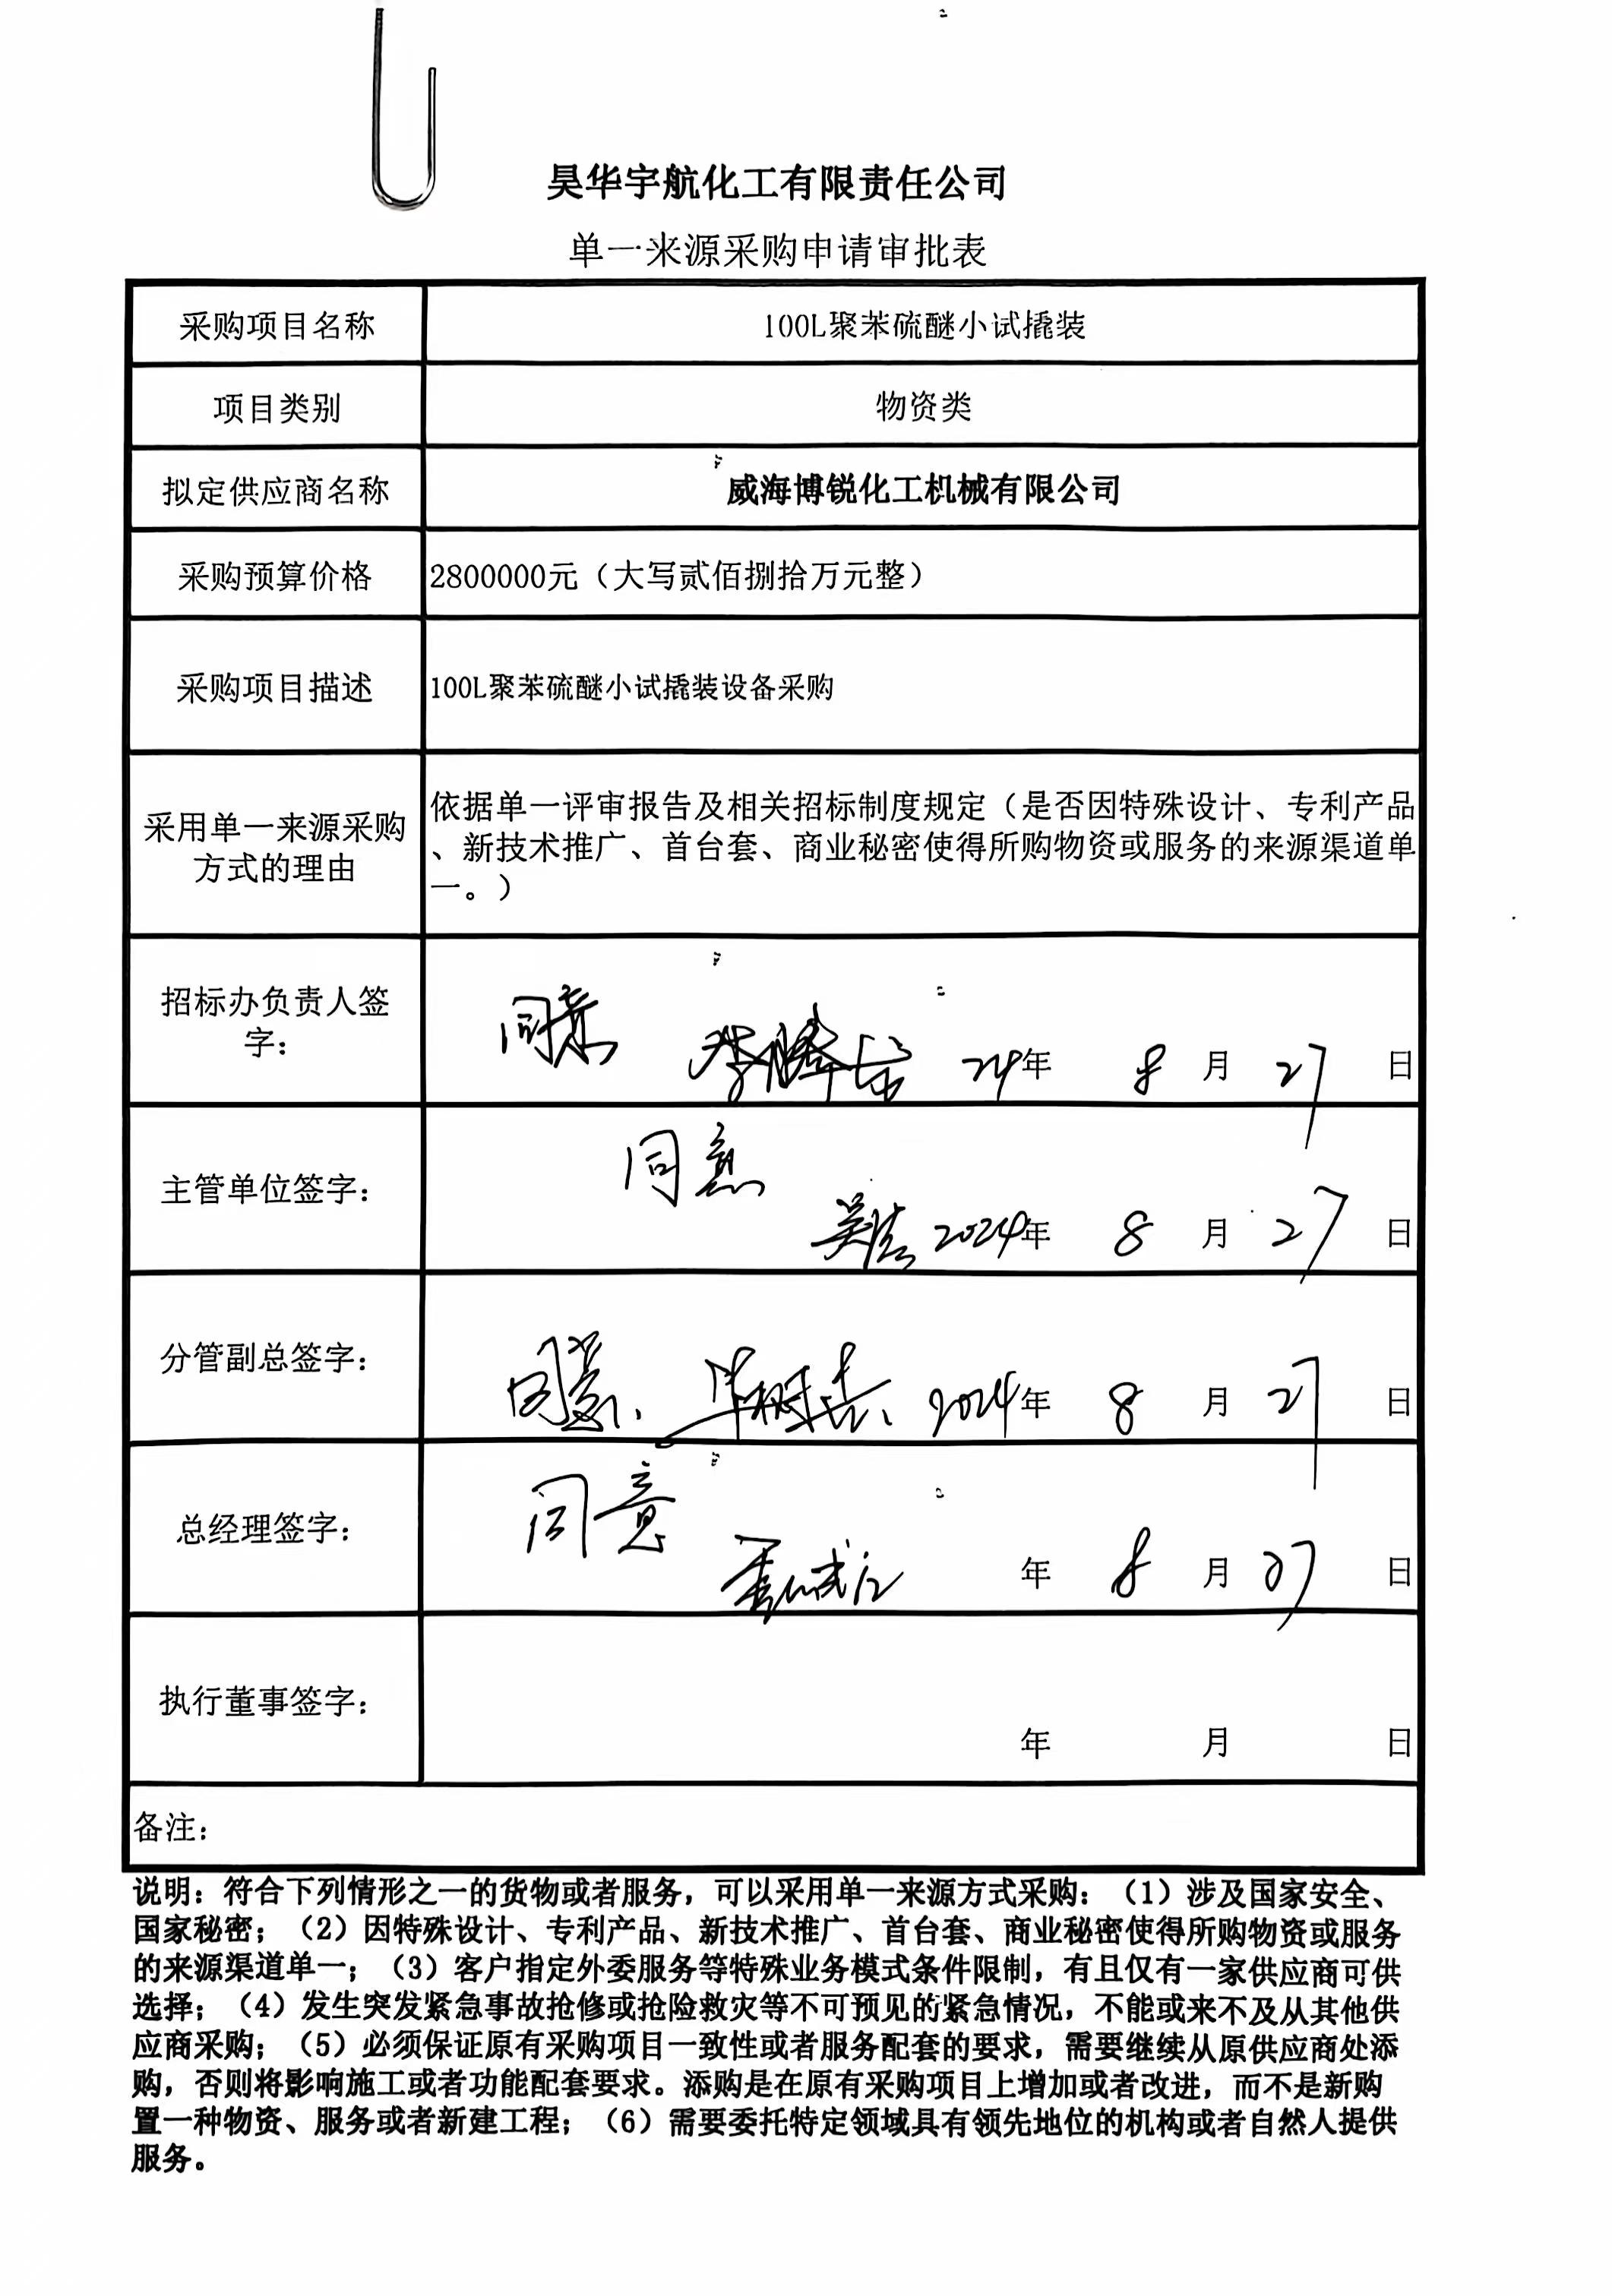 昊华宇航化工有限责任公司
单一来源采购申请审批表
采购项目名称
100L聚苯硫醚小试撬装
项目类别
物资类
拟定供应商名称
威海博锐化工机械有限公司
采购预算价格
2800000元（大写贰佰捌拾万元整）
采购项目描述
100L聚苯硫醚小试撬装设备采购
采用单一来源采购
方式的理由
依据单一评审报告及相关招标制度规定（是否因特殊设计、专利产品
、新技术推广、首台套、商业秘密使得所购物资或服务的来源渠道单
一。）
招标办负责人签
字：
同意
24年 8 月 27 日
主管单位签字：
同意
2024年 8 月 27 日
分管副总签字：
同意
2024年 8 月 27 日
总经理签字：
同意
年 8 月 27 日
执行董事签字：
年 月 日
备注：
说明：符合下列情形之一的货物或者服务，可以采用单一来源方式采购：（1）涉及国家安全、
国家秘密；（2）因特殊设计、专利产品、新技术推广、首台套、商业秘密使得所购物资或服务
的来源渠道单一；（3）客户指定外委服务等特殊业务模式条件限制，有且仅有一家供应商可供
选择；（4）发生突发紧急事故抢修或抢险救灾等不可预见的紧急情况，不能或来不及从其他供
应商采购；（5）必须保证原有采购项目一致性或者服务配套的要求，需要继续从原供应商处添
购，否则将影响施工或者功能配套要求。添购是在原有采购项目上增加或者改进，而不是新购
置一种物资、服务或者新建工程；（6）需要委托特定领域具有领先地位的机构或者自然人提供
服务。